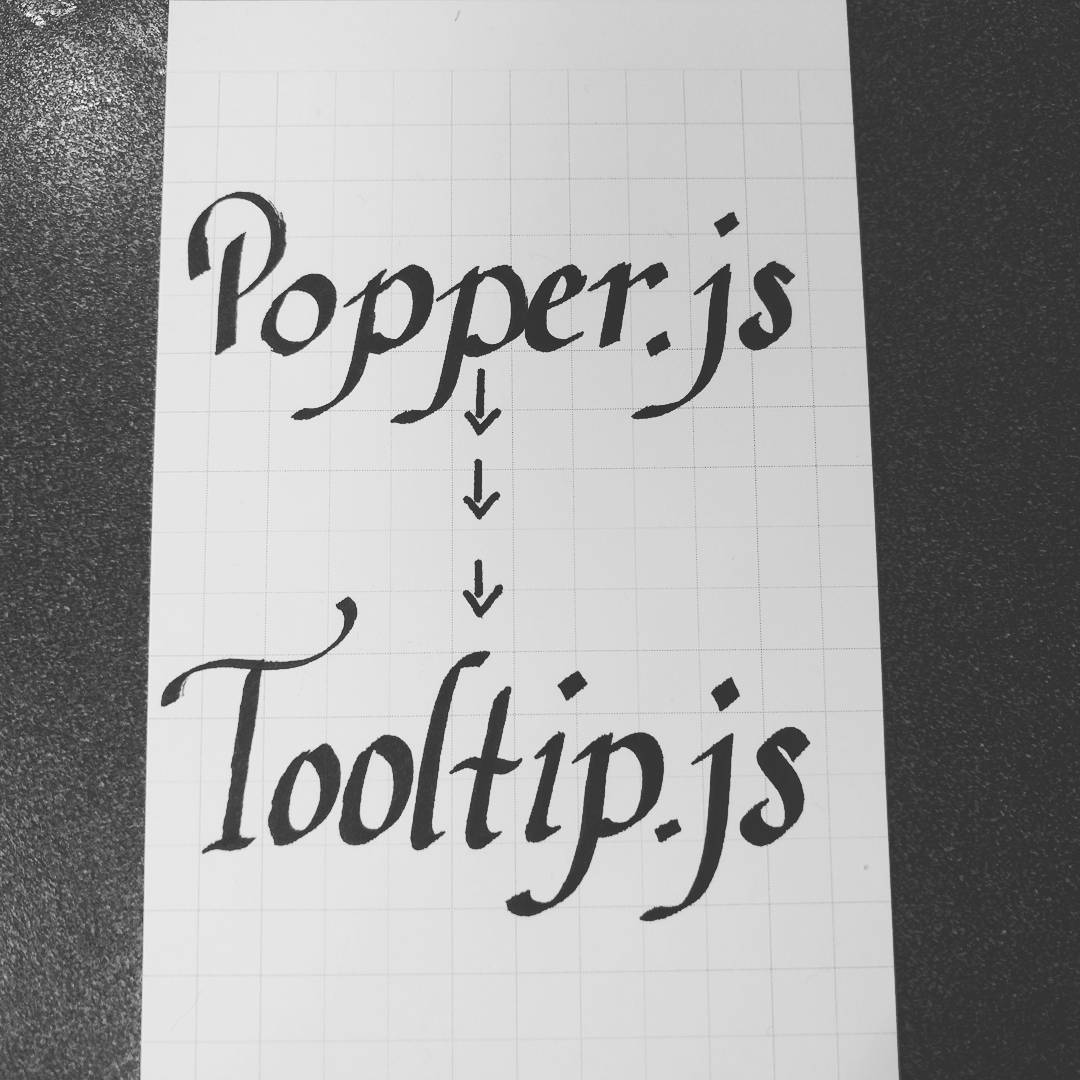 Popper.js
↓
↓
↓
Tooltip.js